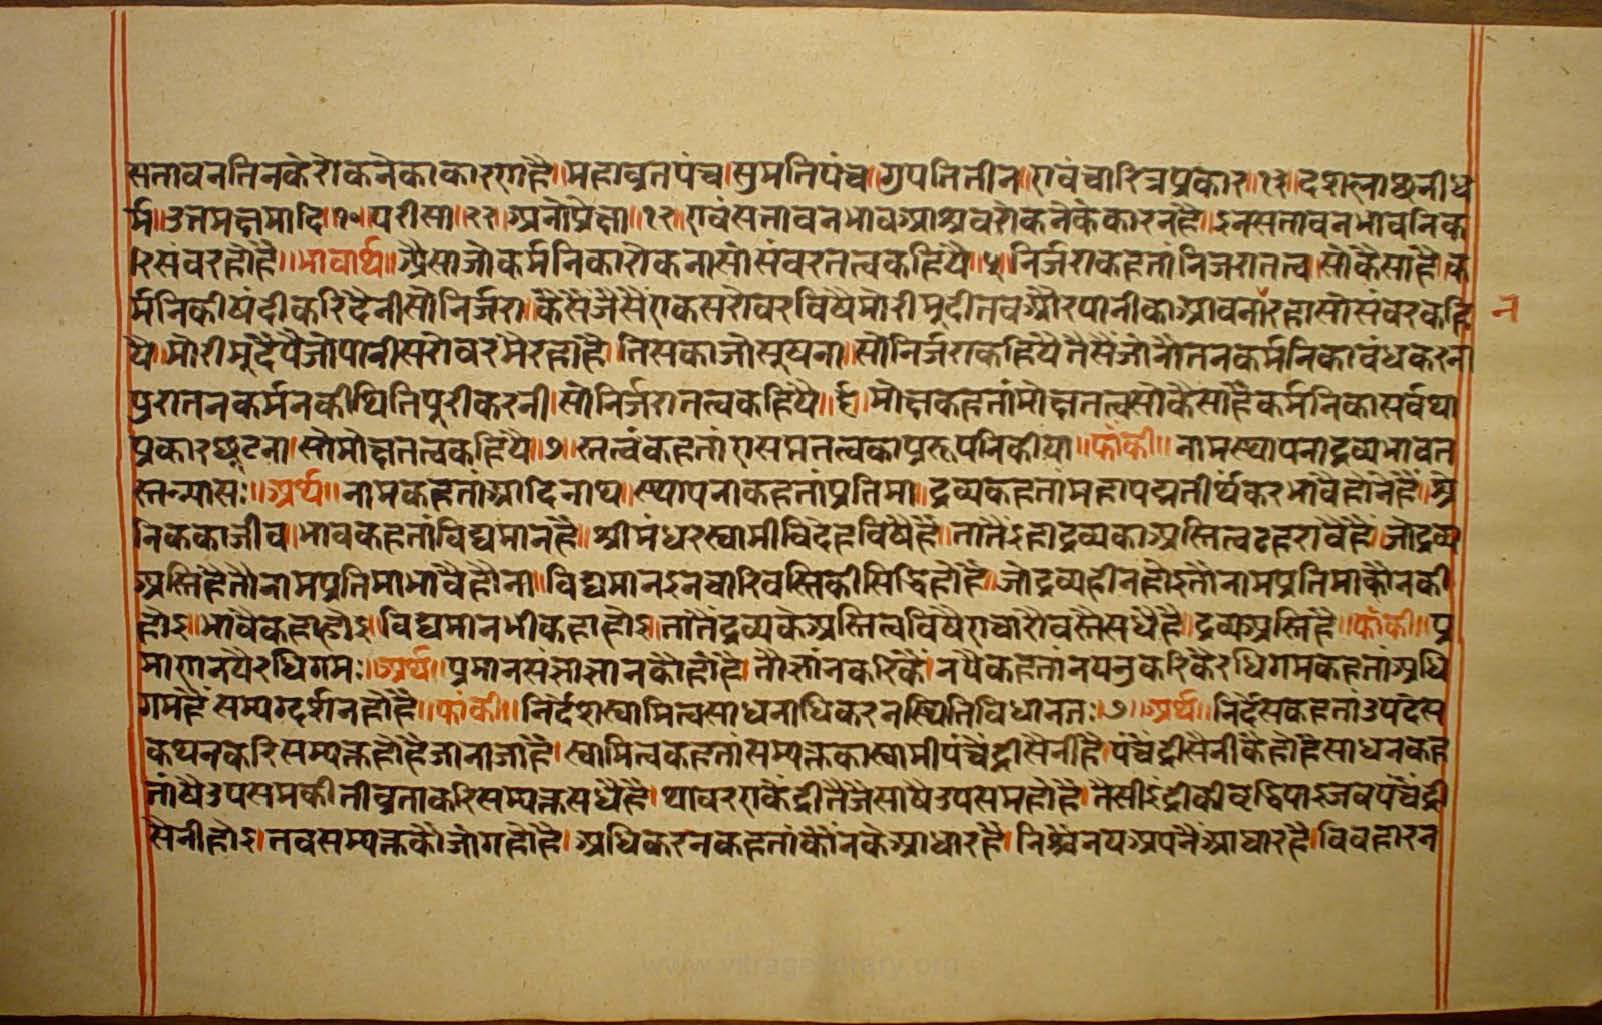 सतावनतिनकेरोकनेकाकारणहै।महाव्रतपंच।सुमतिपंच।गुपतितीन।एवंचारित्रप्रकार।१३।दशलाछनीध
र्म।उत्तमक्षमादि।१०।परीसा।२२।अनोप्रेक्षा।१२।एवंसतावनभावआश्रवरोकनेकेकारनहै।इनसतावनभावनिक
रिसंवरहोहै॥भावार्थ॥अैसाजोकर्मनिकारोकनासोसंवरतत्वकहियै।५।निर्जराकहतांनिजरातत्व।सोकैसाहै।क
र्मनिकीषंदीकरिदैनीसोनिर्जरा।कैसैजैसैएकसरोवरविषैमोरीमुदीतवऔरपानीकाआवनांरहासोसंवरकहि
न
यै।मोरीमुंदैपैजोपानीसरोवरमैरहाहै।तिसकाजोसुषना।सोनिर्जराकहियैतैसैजोनौतनकर्मनिकावंधकरना
पुरातनकर्मनकीथितिपुरीकरनी।सोनिर्जरातत्वकहियै।६।मोक्षकहतांमोक्षतत्वसोकैसाहैकर्मनिकासर्वथा
प्रकारछुटना।सोमोक्षतत्वकहियै।७।स्तत्वंकहतांएसप्ततत्वकाप्ररूपनिकीया॥फांकी॥नामस्थापनाद्रव्यभावत
स्तन्न्यासः॥अर्थ॥नामकहतांआदिनाथ।स्थापनाकहतांप्रतिमा।द्रव्यकहतांमहापद्मतीर्थकरभावैहोनैहै।श्रे
निककाजीव।भावकहतांविद्यमानहै॥श्रीमंधरस्वामीविदेहविषैहै।तातैइहाद्रव्यकाअस्तित्वठहरावैहै।जोद्रव्य
अस्तिहैतौनामप्रतिमाभावैहौना॥विद्यमानइनचारिवस्तिकीसिद्धिहोहै।जोद्रव्यहीनहोइतौनामप्रतिमाकौनकी
होइ।भावैकहाहोइ।विद्यमानभीकहाहोइ।तातैद्रव्यकेअस्तित्वविषैएचारोवस्तैसधैहै।द्रव्यअस्तिहै॥फांकी॥प्र
माणनयैरधिगमः॥अर्थ॥प्रमानसंज्ञाज्ञानकौहोहै।तौज्ञांनकरिकै।नयैकहतांनयनुकरिकैरधिगमकहतांअधि
गमहैसम्यग्दर्शनहोहै॥फांकी॥निर्देशस्वामित्वसाधनाधिकरनस्थितिविधानतः।७॥अर्थ॥निर्देसकहतांउपदेस
कथनकरिसम्यक्तहोहैजानाजाहै।स्वामित्वकहतांसम्यक्तकास्वामीपंचेंद्रीसैनीहै।पंचेंद्रीसैनीकैहोहैसाधनकह
तांषैउपसमकीतीव्रताकरिसम्यक्तसधैहै।थावरएकेंद्रीतैजैसाषैउपसमहोहै।तैसीइंद्रीकीवृद्धिपाइजवपंचेंद्री
सैनीहोइ।तवसम्यक्तकौजोगहोहै।अधिकरनकहतांकौंनकेआधारहै।निश्चैनयअपनैआधारहै।विवहारन